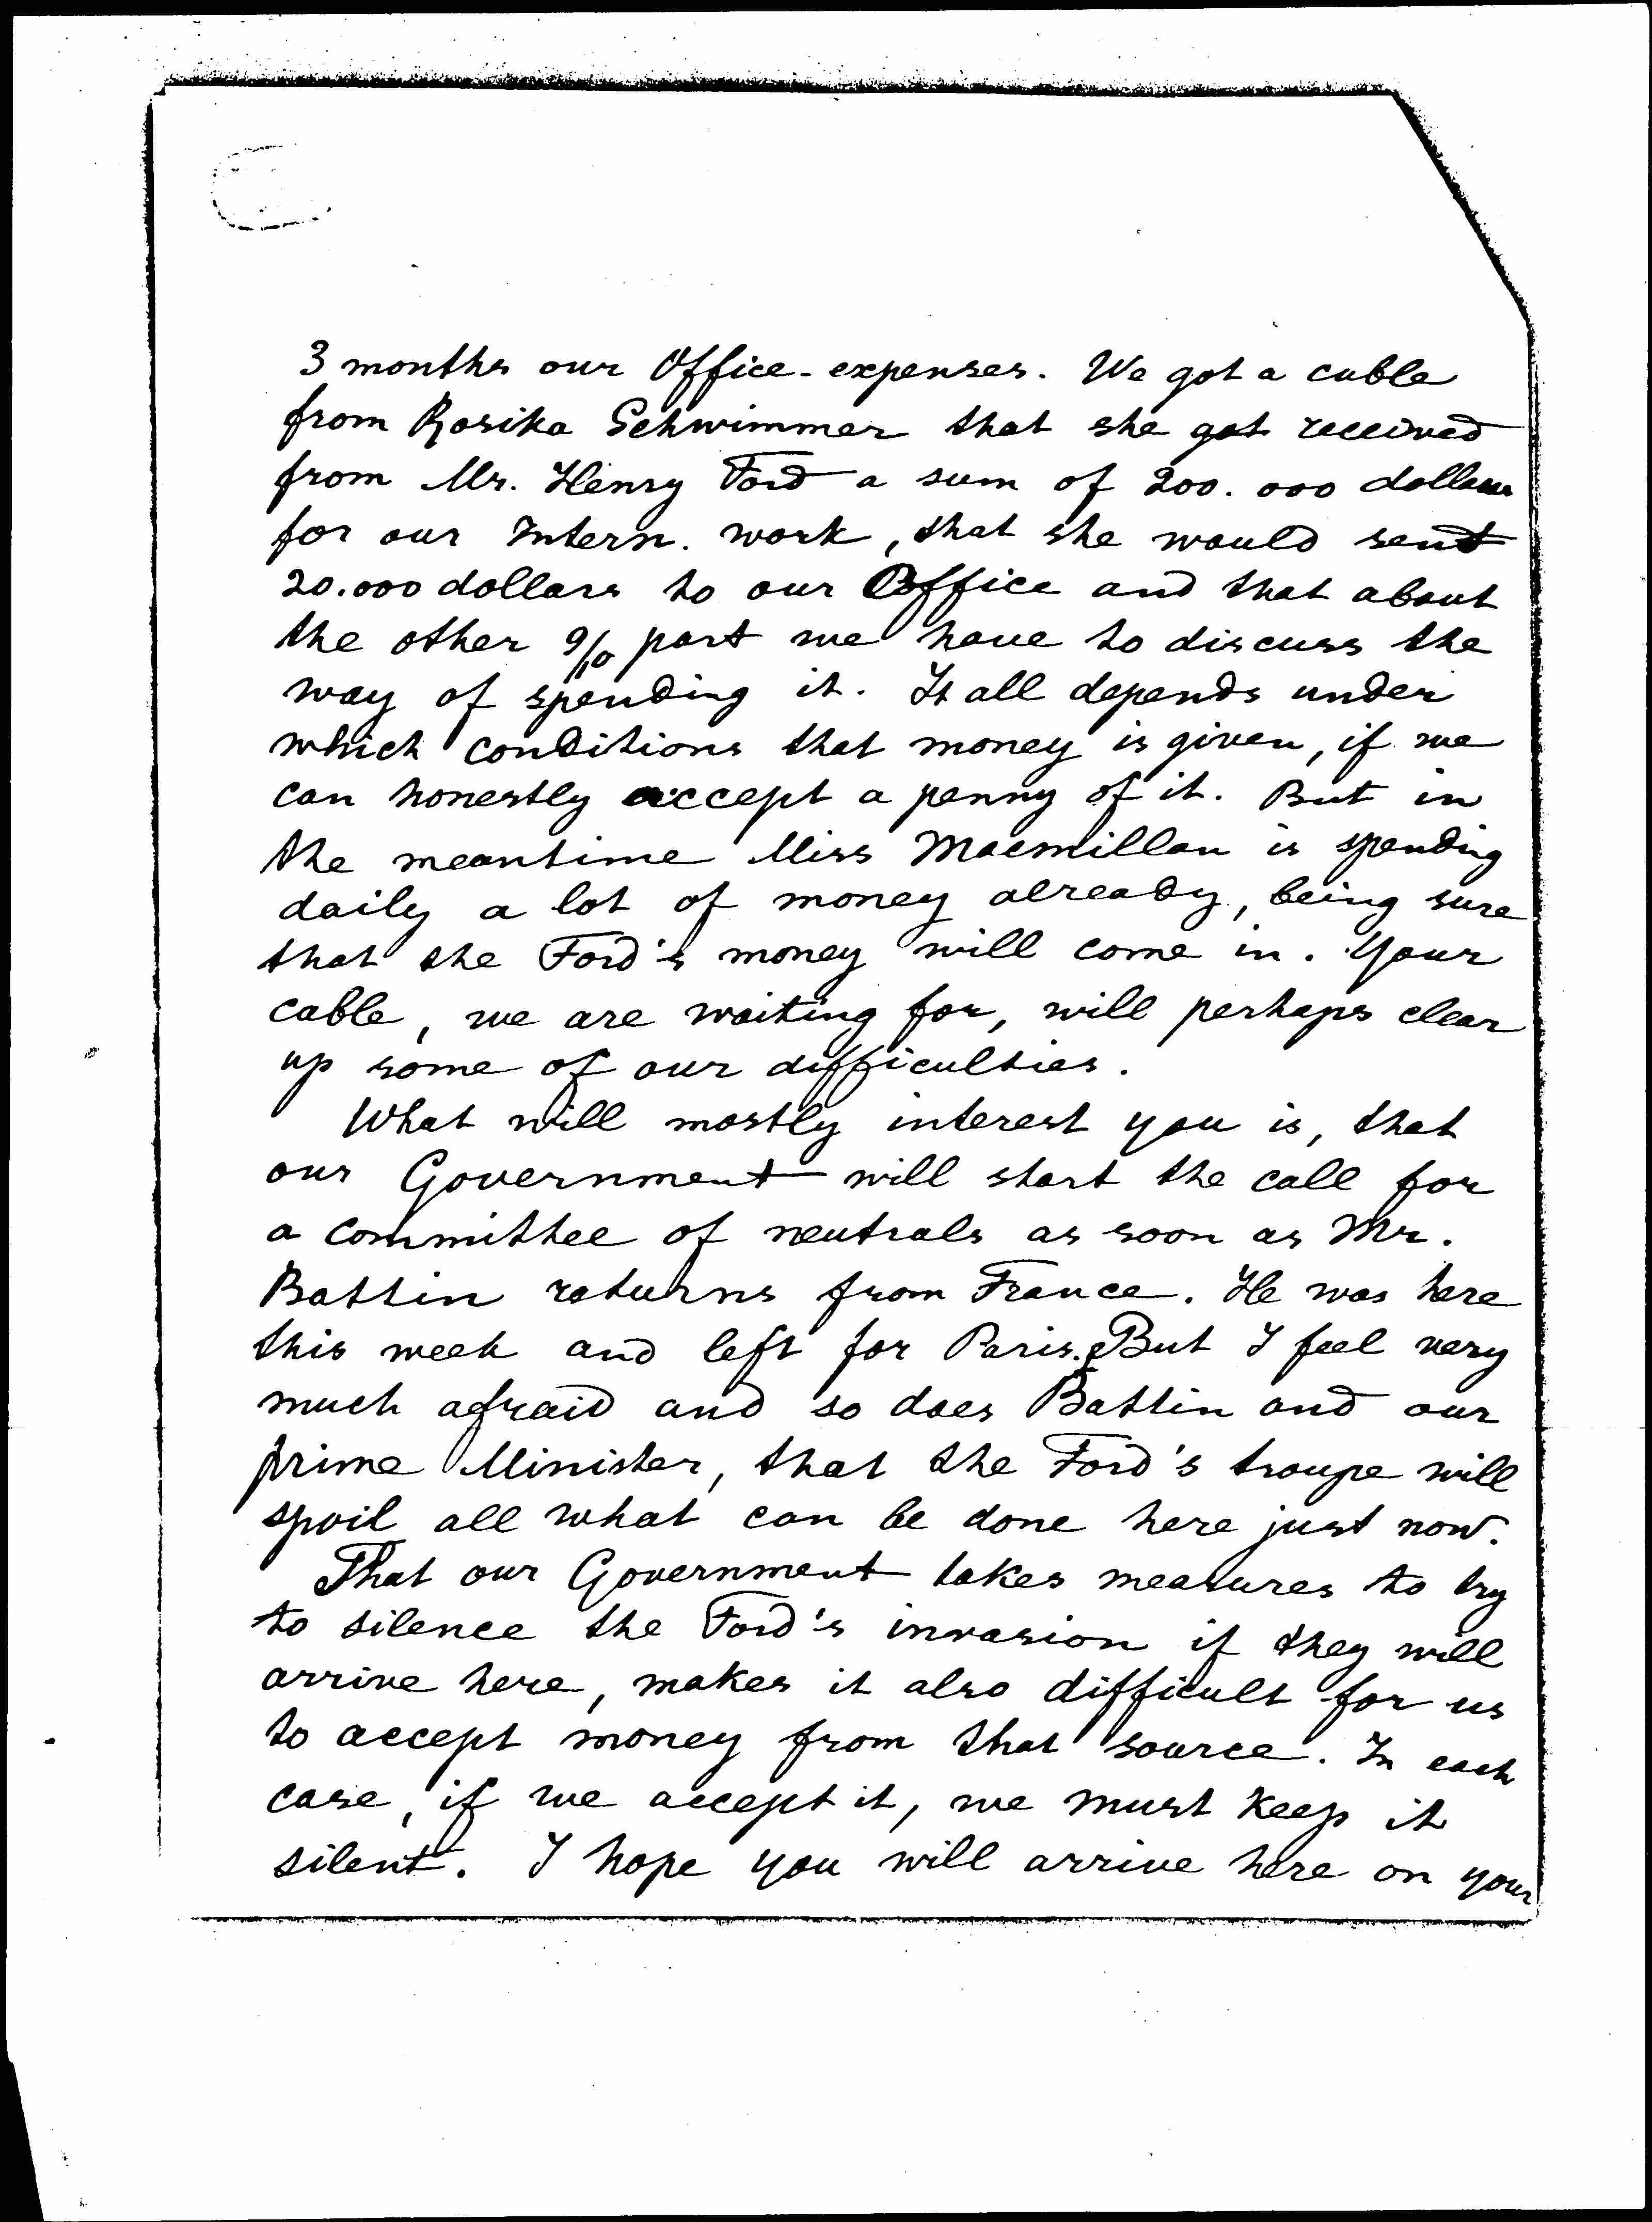 3 months our Office-expenses. We got a cable
from Rosika Schwimmer that she got received
from Mr. Henry Ford a sum of 200.000 dollars
for our Intern. work, that she would sent
20.000 dollars to our Office and that about
the other 9/10 part we have to discuss the
way of spending it. It all depends under
which conditions that money is given, if we
can honestly accept a penny of it. But in
the meantime Miss Macmillan is spending
daily a lot of money already, being sure
that the Ford's money will come in. Your
cable, we are waiting for, will perhaps clear
up some of our difficulties.
What will mostly interest you is, that
our Government will start the call for
a committee of neutrals as soon as Mr.
Battin returns from France. He was here
this week and left for Paris. But I feel very
much afraid and so does Battin and our
prime Minister, that the Ford's troupe will
spoil all what can be done here just now.
That our Government takes measures to try
to silence the Ford's invasion if they will
arrive here, makes it also difficult for us
to accept money from that source. In each
case, if we accept it, we must keep it
silent. I hope you will arrive here on your